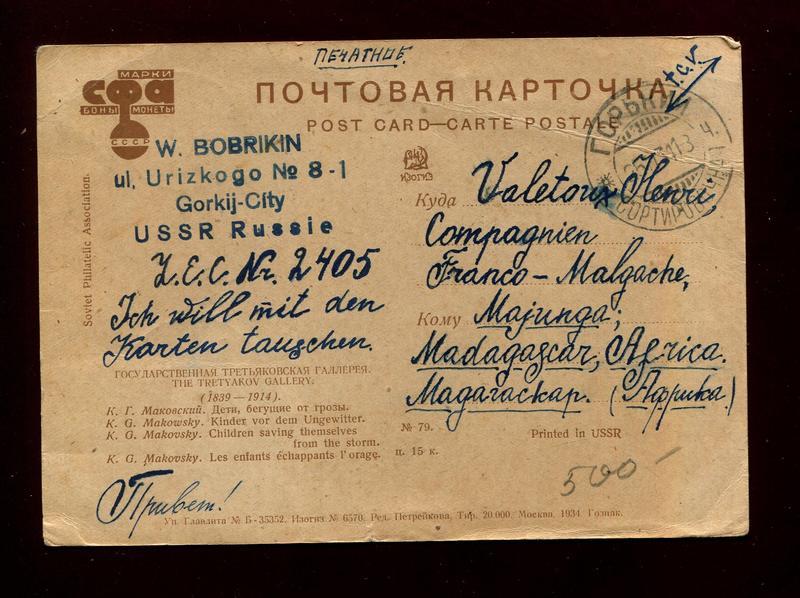 ПЕЧАТНОЕ.
t.c.v.
МАРКИ
СФА
БОНЫ МОНЕТЫ
СССР
ПОЧТОВАЯ КАРТОЧКА
POST CARD—CARTE POSTALE
W. BOBRIKIN
ul. Urizkogo № 8-1
Gorkij-City
USSR Russie
I.E.C. Nr. 2405
Ich will mit den
Karten tauschen.
Soviet Philatelic Association.
ГОСУДАРСТВЕННАЯ ТРЕТЬЯКОВСКАЯ ГАЛЛЕРЕЯ.
THE TRETYAKOV GALLERY.
(1839—1914).
К. Г. Маковский. Дети, бегущие от грозы.
K. G. Makowsky. Kinder vor dem Ungewitter.
K. G. Makovsky. Children saving themselves
from the storm.
K. G. Makovsky. Les enfants échappants l'orage.
Привет!
ИЗОГИЗ
ГОРЬКИЙ
СОРТИРОВ
Куда Valetoux Henri,
Compagnien
Franco-Malgache,
Кому Majunga;
Madagascar, Africa.
Мадагаскар. (Африка.)
№ 79.
Printed in USSR
ц. 15 к.
500-
Уп. Главлита № Б-35352. Изогиз № 6570. Ред. Петрейкова. Тир. 20.000. Москва. 1934. Гознак.